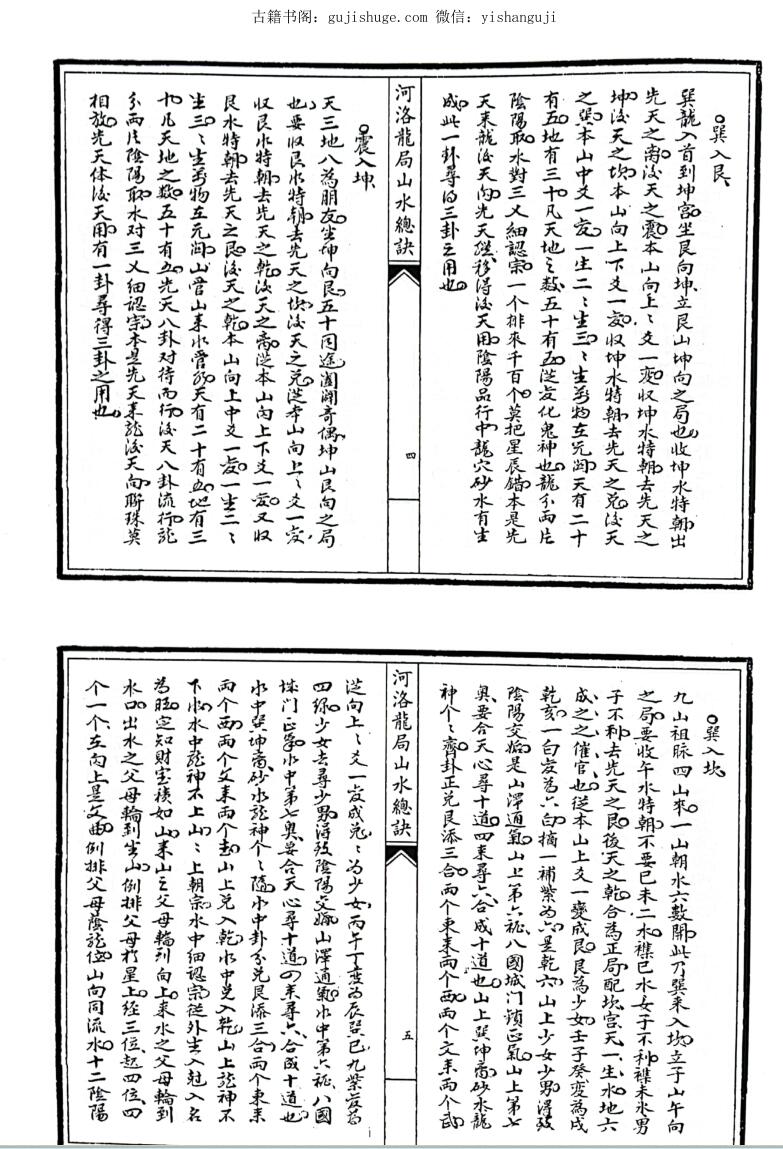 古籍书阁：gujishuge.com 微信：yishanguji
巽入艮
巽龍入首到坤宫坐艮向坤立艮山坤向之局也收坤水特朝出
先天之离後天之震本山向上上爻一变收坤水特朝去先天之
坤後天之坎本山向上下爻一变收坤水特朝去先天之兑後天
之巽本山中爻一变一生二二生三三生萬物在元関天有二十
有五地有三十凡天地之数五十有五从变化鬼神也龍分兩片
陰陽取水对三义細認宗一个排來千百个莫把星辰錯本是先
天来龍後天向先天继移得後天用陰陽品行中龍穴砂水有生
成此一卦尋的三卦之用也
河洛龍局山水總訣
四
震入坤
天三地八為朋友坐坤向艮五十同途闔闢奇偶坤山艮向之局
也要收艮水特朝去先天之坎後天之兑从本山向上上爻一变
收艮水特朝去先天之乾後天之离从本山向上下爻一变又收
艮水特朝去先天之艮後天之乾本山向上中爻一变一生二二
生三三生萬物在元関山管山来水管水天有二十有五地有三
十凡天地之数五十有五先天八卦对待而行後天八卦流行龍
分兩片陰陽取水对三义細認宗本是先天来龍後天向聯珠莫
相放先天体後天用有一卦尋得三卦之用也
巽入坎
九山祖脉四山來一山朝水六数開此乃巽来入坎立子山午向
之局要收午水特朝不要巳未二水襍巳水女子不利襍未水男
子不利去先天之艮後天之乾合為正局配坎宫天一生水地六
成之之催官也從本山上爻一变成艮艮為少女壬子癸变為戌
乾亥一白变為六白摘一補紫為六是乾六山上少女少男得致
陰陽交媾是山澤通氣山上第六秘八國城门鎖正氣山上第七
奥要合天心尋十道四来尋六合成十道也山上巽坤离砂水龍
神个个齊卦正兑艮添三合兩个東来兩个西兩个文来兩个武
河洛龍局山水總訣
五
从向上上爻一变成兑兑為少女丙午丁变為辰巽巳九紫变為
四绿少女去尋少男得致陰陽交媾山澤通氣水中第六秘八國
城门正氣水中第七奥要合天心尋十道四来尋六合成十道也
水中巽坤离砂水龍神个个隨水中卦分兑艮添三合兩个東来
兩个西兩个文来兩个武山上兑入乾水中兑入乾山上龍神不
下水水中龍神不上山山上朝宗水中細認宗從外生入尅入名
為旺定知財宝積如山来山之父母輪到向上来水之父母輪到
水口出水之父母輪到坐山例排父母於星上經三位起四位四
个一个在向上是文曲例排父母蔭龍位山向同流水十二陰陽